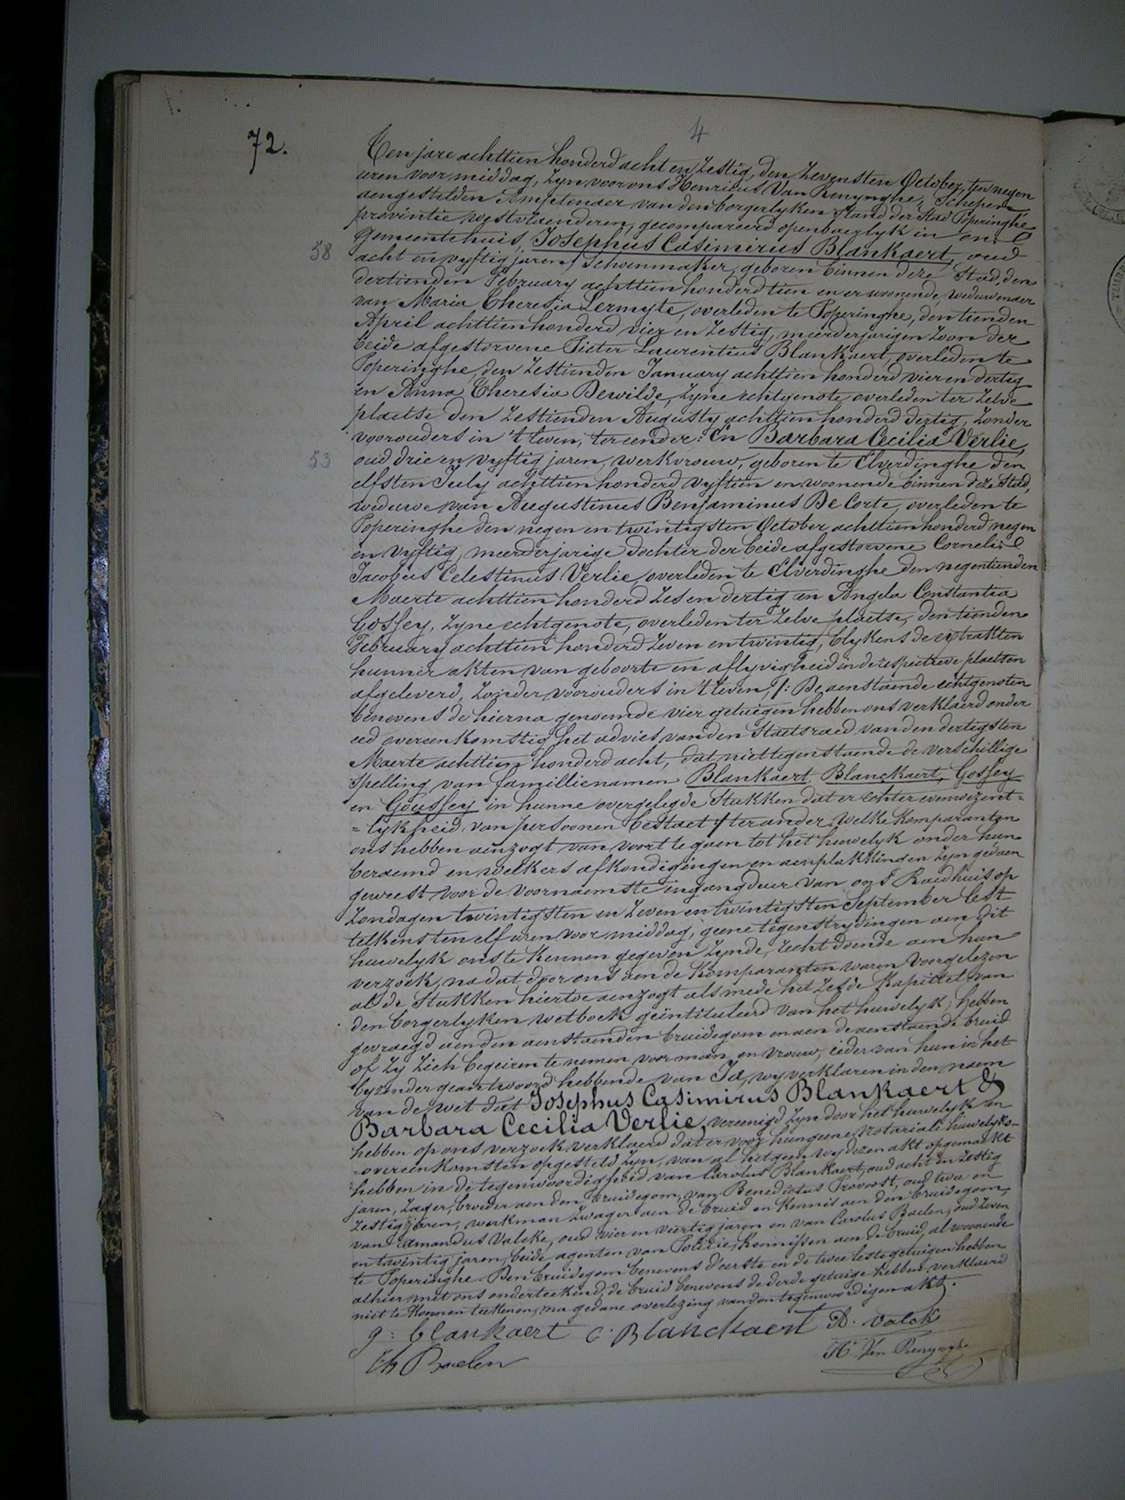 4
72.
Ten jare achttien honderd acht en zestig, den zevensten October, ten negen
uren voor middag, zyn voor ons Henricus Van Renynghe, Schepen
aengestelden Amptenaer van den borgerlyken stand der Stad Poperinghe
provintie Westvlaenderen, gecompareerd openbaerlyk in ons
gemeentehuis, Josephus Casimirus Blankaert, oud
58
acht en vyftig jaren, Schoenmaker, geboren binnen deze Stad, den
dertienden February achttien honderd tien en er woonende, weduwenaer
van Maria Theresia Lermyte, overleden te Poperinghe, den tienden
April achttien honderd vier en zestig, meerderjarigen zoon der
beide afgestorvene Pieter Laurentius Blankaert, overleden te
Poperinghe, den zestienden January achttien honderd vier en dertig
en Anna Theresia Dewilde, zyne echtgenote, overleden ter zelve
plaetse den zestienden Augusty achttien honderd dertig, zonder
voorouders in 't leven, ter eender: En Barbara Cecilia Verlie,
53
oud drie en vyftig jaren, werkvrouw, geboren te Elverdinghe den
elfsten July achttien honderd vyftien en woonende binnen deze Stad,
weduwe van Augustinus Benjaminus De Corte, overleden te
Poperinghe den negen en twintigsten October achttien honderd negen
en vyftig, meerderjarige dochter der beide afgestorvene Cornelis
Jacobus Celestinus Verlie, overleden te Elverdinghe den negentienden
Maerte achttien honderd zes en dertig en Angela Constantia
Gossey, zyne echtgenote, overleden ter zelve plaetse, den tienden
February achttien honderd zeven en twintig, blykens de extrakten
hunner akten van geboorte en aflyvigheid in de respectieve plaetsen
afgeleverd, zonder voorouders in 't leven, /: De aenstaende echtgenoten
benevens de hierna genoemde vier getuigen hebben ons verklaerd onder
eed overeenkomstig het advies van den Staetsraed van den dertigsten
Maerte achttien honderd acht, dat niettegenstaende de verschillige
spelling van famillienamen Blankaert, Blanckaert, Gossey
en Goussey in hunne overgelegde Stukken dat er echter eenwezent-
=lykheid van persoonen bestaet / ter ander, welke komparanten
ons hebben aenzogt van voort te gaen tot het huwelyk onder hun
beraemd en welkers afkondigingen en aenplakkingen zyn gedaen
geweest voor de voornaemste ingangdeur van ons Raedhuis op
Zondagen twintigsten en zeven en twintigsten September lest
telkens ten elf uren voor middag, geene tegenstrydingen aen dit
huwelyk ons te kennen gegeven zynde, recht doende aen hun
verzoek, na dat door ons aen de komparanten waren voorgelezen
al de Stukken hiertoe aenzogt als mede het zesde kapittel van
den borgerlyken wetboek geïntituleerd van het huwelyk, hebben
gevraegd aen den aenstaenden bruidegom en aen de aenstaende bruid
of zy zich begeiren te nemen voor man en vrouw, ieder van hun in het
byzonder geantwoord hebbende van Ja, wy verklaren in den naem
van de wet dat Josephus Casimirus Blankaert &
Barbara Cecilia Verlie, vereenigd zyn door het huwelyk en
hebben op ons verzoek verklaerd dat er voor hun geene notariale huwelyks-
-overeenkomsten opgesteld zyn, van al hetgeen wy dezen akt opgemaekt
hebben in de tegenwoordigheid van Carolus Blankaert, oud acht en zestig
jaren, Zager, broeder aen den bruidegom, van Benedictus Provoost, oud twee en
zestig jaren, werkman, Zwager aen de bruid en kennis aen den bruidegom,
van Amandus Valcke, oud vier en veertig jaren en van Carolus Baelen, oud zeven
en twintig jaren, beide agenten van Polizie, kennissen aen de bruid, al woonende
te Poperinghe. Den bruidegom benevens d'eerste en de twee leste getuigen hebben
alhier met ons onderteekend, de bruid benevens de derde getuige hebben verklaerd
niet te konnen teekenen, na gedane overlezing van den tegenwoordigen akt.
J: blankaert C. Blanckaert A. Valck
Ch Baelen H. Van Renynghe